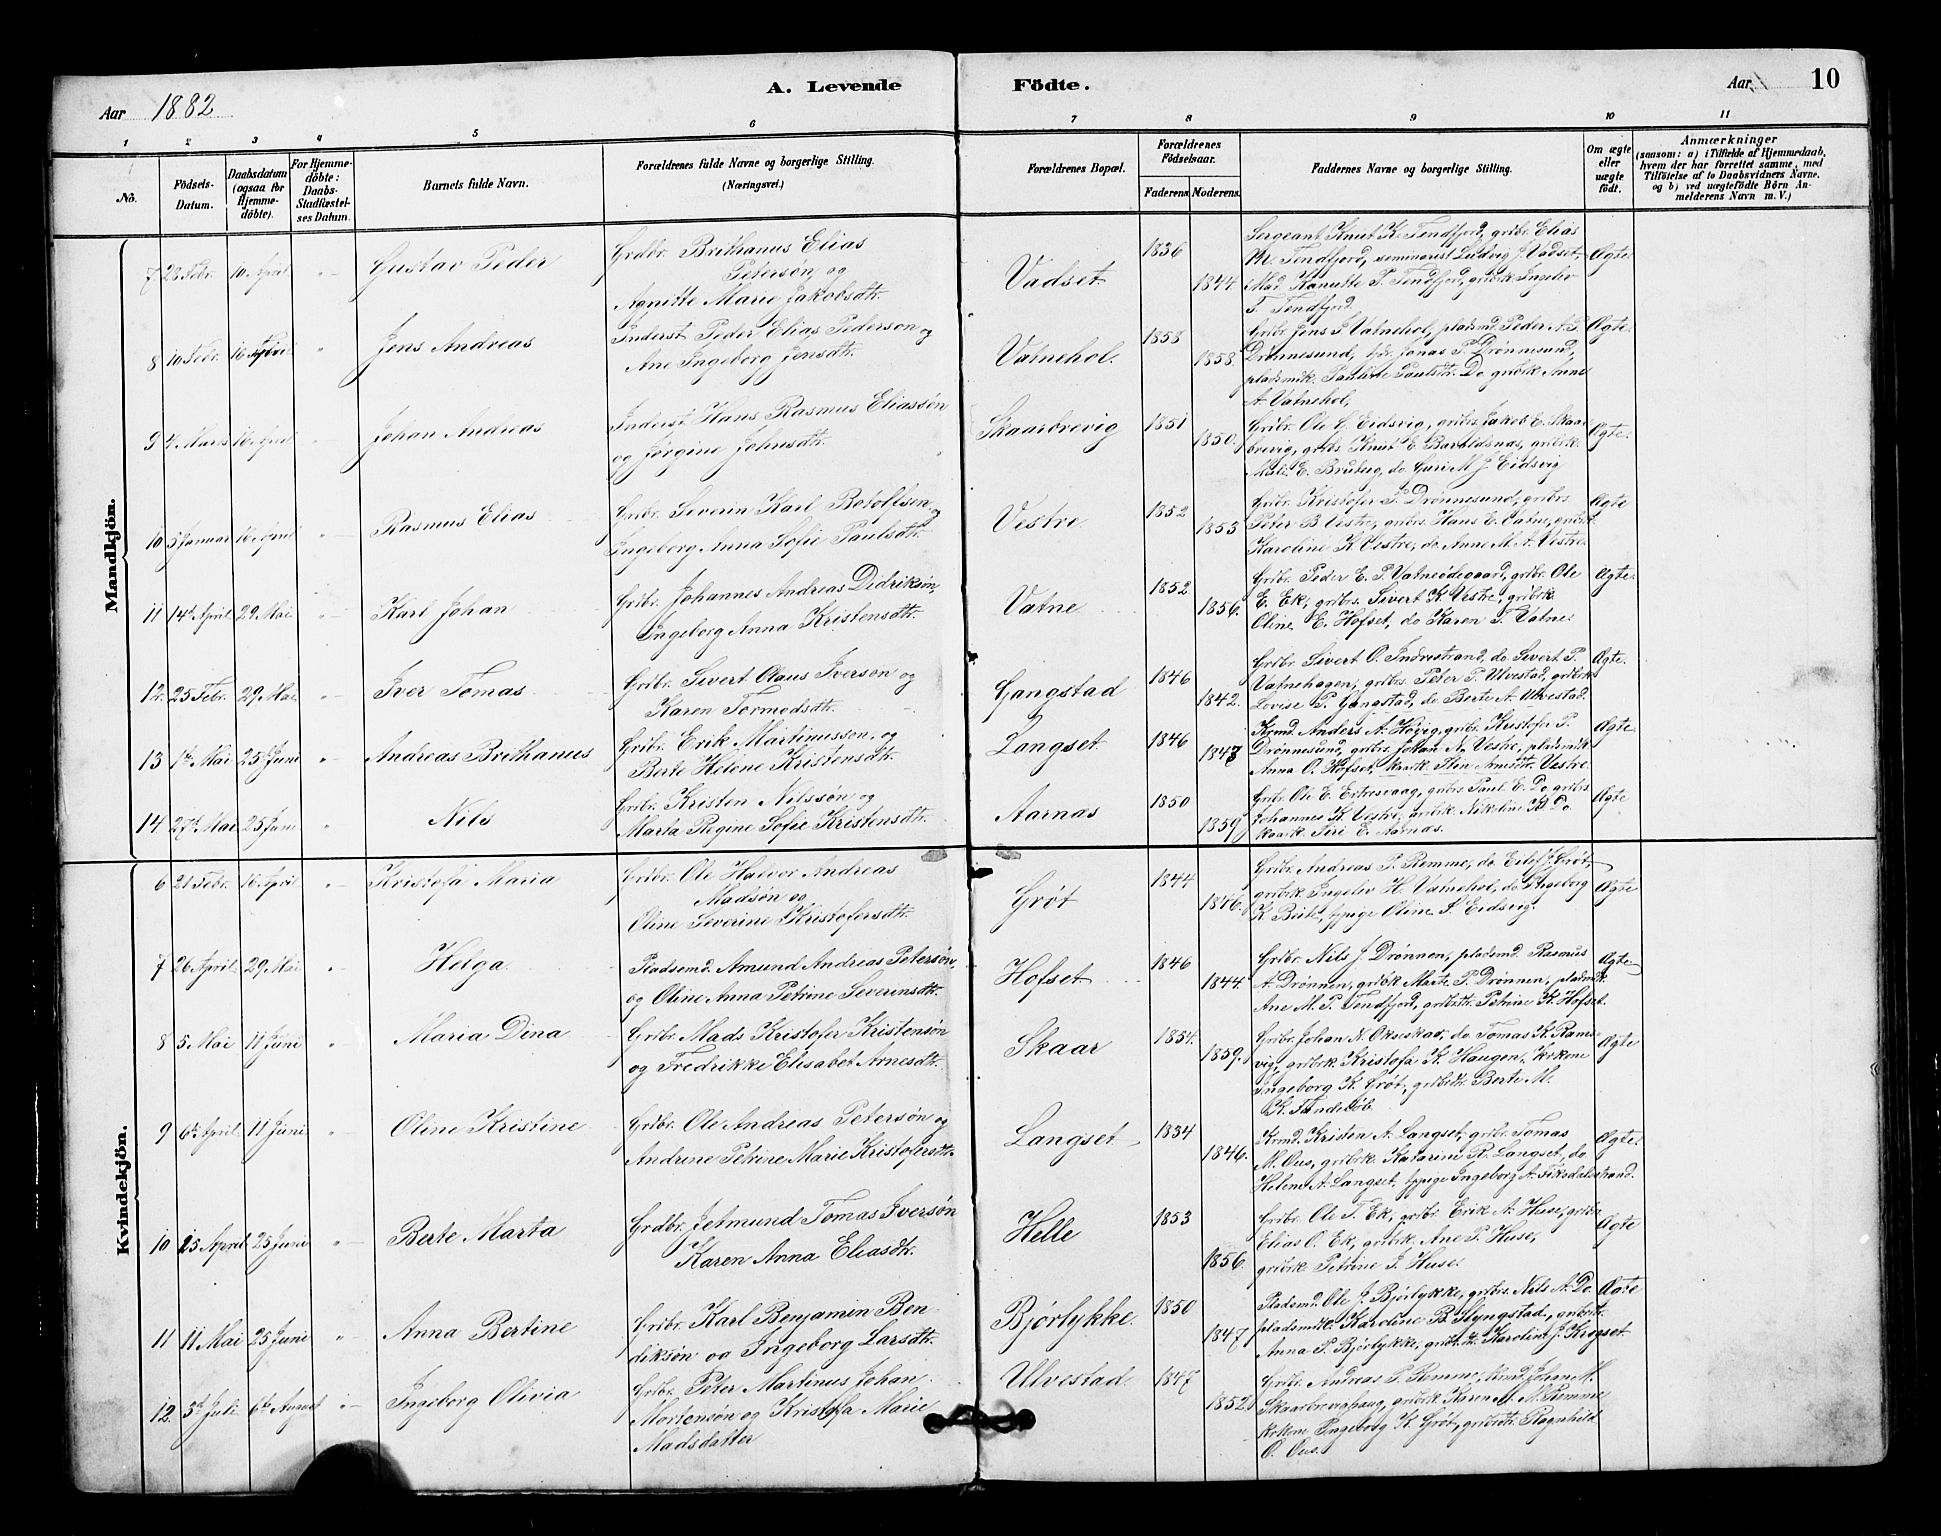 Aar 1882
A. Levende Födte.
Aar 10
1 2 3 4 5 6 7 8 9 10 11
No.
Födsels-Datum.
Daabsdatum (ogsaa for Hjemmedöbte).
For Hjemmedöbte: Daabs-Stadfæstelses Datum.
Barnets fulde Navn.
Forældrenes fulde Navne og borgerlige Stilling. (Næringsvei.)
Forældrenes Bopæl.
Forældrenes Födselsaar.
Faderens Moderens.
Faddernes Navne og borgerlige Stilling.
Om ægte eller uægte födt.
Anmærkninger
(saasom: a) i Tilfælde af Hjemmedaab, hvem der har forrettet samme, med Tilföielse af to Daabsvidners Navne, og b) ved uægtefödte Börn Anmelderens Navn m. V.)
Mandkjön.
7 28 Febr. 10 April " Gustav Peder
Grdbr. Brithanus Elias
Petersøn og
Agnitte Marie Jakobsdtr.
Vadset 1836 1844
Sergeant Knut K. Tendfjord, grdbr. Elias
M. Tendfjord, seminarist Ludvig J. Vadset,
Mad. Kanutte P. Tendfjord, grdbrk. Ingeliv
T. Tendfjord.
Ægte
8 10 Febr. 16 April " Jens Andreas
Inderst Peder Elias Pederson og
Ane Ingeborg Jensdtr.
Vatnehol. 1853 1858.
Grbr. Jens P. Vatnehol, pladsmd. Peder A. P.
Drønnesund, Jonas P. Drønnesund,
pladsmdk. Pauline Paulsdtr. Do, grdbrk. Anne
A. Vatnehol,
Ægte.
9 4 Marts 16 April " Johan Andreas
Inderst Hans Rasmus Eliassøn
og Jørgine Johnsdtr.
Skaarbrevig 1851 1850.
Grdbr. Ole G. Eidsvig, grdbrs. Jakob E. Skaar-
brevig, grdbs. Knut E. Baraldsnæs, grdbrk.
Mali E. Bruberg, do Guri M. J. Eidsvig
Ægte.
10 5 Januar 16 April " Rasmus Elias
Grdbr. Severin Karl Botolfsen og
Ingeborg Anna Sofie Paulsdtr.
Vestre. 1852 1853
Grdbr. Kristofer P. Drønnesund, grdbrs.
Peter B. Vestre, grdbrs. Hans E. Vatne, grdbrk.
Karoline K. Vestre, do Anne M. A. Vestre.
Ægte
11 14de April 29 Mai " Karl Johan
Grdbr. Johannes Andreas Didriksøn,
Ingeborg Anna Kristensdtr.
Vatne 1852 1856.
Grdbr. Peder E. P. Vatneødegaard, grdbr. Ole
E. Ek, grdbrs. Sivert K. Vestre, grdbrk.
Oline E. Hofset, do Karen T. Vatne.
Ægte.
12. 25 Febr. 29 Mai " Iver Tomas
Grdbr. Sivert Olaus Iverson og
Karen Tormodsdtr.
Gangstad 1846 1842.
Grdbr. Sivert O. Indrestrand, do. Sivert P.
Vatnehagen, grdbrs. Peter P. Ulvestad, grdbrk.
Lovise P. Gangstad, do Berte A. Ulvestad.
Ægte.
13 1ste Mai 25 Juni " Andreas Brithanus
Grdbr. Erik Martinusson og
Berte Helene Kristensdtr.
Langset 1846 1847
Krmd. Anders A. Hovig, grdbr. Kristofer P.
Drønnesund, grdbrs. Johan N. Vestre, pladsmdk.
Anna O. Hofset, kaark. Arnesdtr. Vestre.
Ægte
14 27de Mai 25 Juni " Nils
Grdbr. Kristen Nilssøn og
Marta Regine Sofie Kristensdtr.
Aarnæs 1850 1859
Grdbr. Ole E. Ertresvaag, grdbrs. Paul E. Do, grdbrs.
Johannes K. Vestre, grdbrk. Nikoline K. Do.
kaark. Siri E. Aarnæs.
Ægte
Kvindekjön.
6 21 Febr. 16 April " Kristofa Maria
Grdbr. Ole Halvor Andreas
Madsøn og
Oline Severine Kristofersdtr.
Grøt 1844 1846.
Grdbr. Andreas P. Remme, do. Eilef J. Grøt
grdbrk. Ingeliv H. Vatnehol, do. Ingeborg
K. Beite, pige Oline S. Eidsvig.
Ægte
7 26 April 29 Mai " Helga
Pladsmd. Amund Andreas Petersøn,
og Oline Anna Petrine Severinsdtr.
Hofset 1846 1844.
Grdbr. Nils J. Drønnen, pladsmd. Rasmus
A. Drønnen, grdbrk. Marte P. Drønnen, pladsmdk.
Ane M. P. Tendfjord, grdbrdtr. Petrine K. Hofset.
Ægte
8 5 Mai 11 Juni " Maria Dina
Grdbr. Mads Kristofer Kristensøn
og Fredrikke Elisabet Arnesdtr.
Skaar 1854. 1859.
Grdbr. Johan N. Okseskad, do. Tomas K. Rams-
vig, grdbrk. Kristofa K. Haugen, krkone
Ingeborg K. Grøt, grdbrdtr. Berte M.
K. Tandebøb.
Ægte
9 6te April 11 Juni " Oline Kristine
Grdbr. Ole Andreas Petersøn og
Andrine Petrine Marie Kristofersdtr.
Langset 1834 1846.
Krmd. Kristen A. Langset, grdbr. Tomas
M. Ous, grdbrk. Katarine R. Langset, do
Helene A. Langset, pige Ingeborg A. Fiksdalsstrand.
Ægte.
10 25 April 25 Juni " Berte Marta
Grdbr. Jetmund Tomas Iversøn
Karen Anna Eliasdtr.
Helle 1853 1856.
Grdbr. Ole T. Ek, grdbr. Erik A. Huse, grdbrs.
Elias O. Ek, grdbrk. Ane P. Huse,
grdbrk. Petrine J. Huse.
Ægte
11 11 Mai 25 Juni " Anna Bertine
Grdbr. Karl Benjamin Ben-
diksøn og Ingeborg Larsdtr.
Bjørlykke. 1850 1847
Pladsmd. Ole J. Bjørlykke, grdbrs. Nils A. Do.
pladsmdk. Karoline B. Slyngstad, grdbrdtr.
Anna P. Bjørlykke, grdbrdtr. Karoline J. Krogset
Ægte
12. 3de Juli 6te August " Ingeborg Olivia
Grdbr. Peter Martinus Johan
Mortensøn og Kristofa Marie
Madsdatter
Ulvestad 1847 1852
Grdbr. Andreas P. Remme, krmd. Johan M.
Skaarbrevighaug, grdbrk. Karen M. N. Remme
krkone Ingeborg K. Grøt, grdbrdtr. Ragnhild
O. Ous.